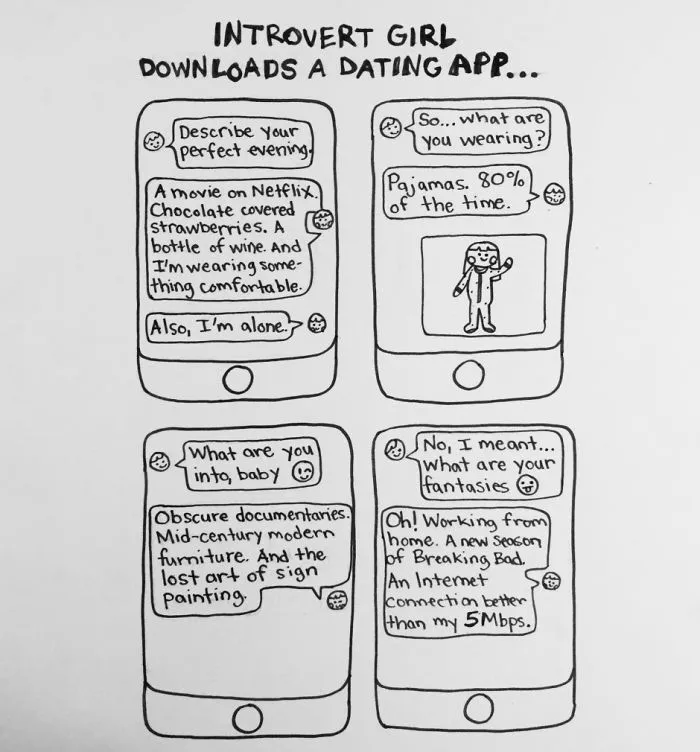 INTROVERT GIRL
DOWNLOADS A DATING APP...
Describe your
perfect evening.
A movie on Netflix.
Chocolate covered
strawberries. A
bottle of wine. And
I'm wearing some-
thing comfortable.
Also, I'm alone.
So... what are
you wearing?
Pajamas. 80%
of the time.
What are you
into, baby
Obscure documentaries.
Mid-century modern
furniture. And the
lost art of sign
painting.
No, I meant...
what are your
fantasies
Oh! Working from
home. A new season
of Breaking Bad.
An Internet
connection better
than my 5Mbps.